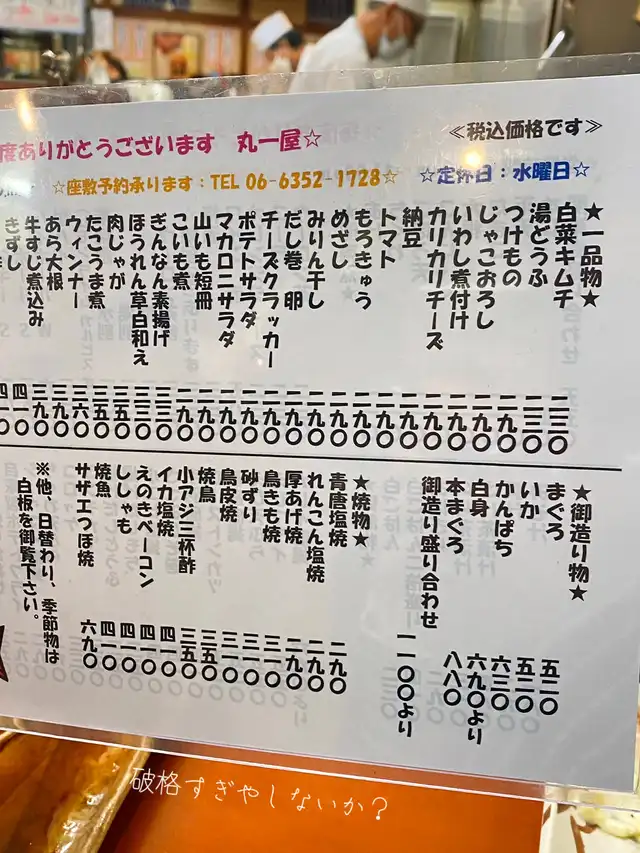 度ありがとうございます 丸一屋☆
≪税込価格です≫
☆座敷予約承ります：TEL 06-6352-1728☆
☆定休日：水曜日☆
★一品物★
白菜キムチ 二三〇
湯どうふ 二三〇
つけもの 二九〇
じゃこおろし 二九〇
いわし煮付け 二九〇
カリカリチーズ 二九〇
納豆 二九〇
トマト 二九〇
もろきゅう 二九〇
めざし 二九〇
みりん干し 二九〇
だし巻 卵 二九〇
チーズクラッカー 二九〇
ポテトサラダ 二九〇
マカロニサラダ 二九〇
山いも短冊 二九〇
こいも煮 二九〇
ぎんなん素揚げ 三三〇
ほうれん草白和え 三三〇
肉じゃが 三五〇
たこうま煮 三五〇
ウィンナー 三六〇
あら大根 三九〇
牛すじ煮込み 三九〇
きずし 四一〇
四一〇
★御造り物★
まぐろ 五二〇
いか 五二〇
かんぱち 六三〇
白身 六九〇より
本まぐろ 八八〇
御造り盛り合わせ 一一〇〇より
★焼物★
青唐塩焼 二九〇
れんこん塩焼 二九〇
厚あげ焼 二九〇
鳥きも焼 三一〇
砂ずり 三一〇
鳥皮焼 三一〇
焼鳥 三五〇
小アジ三杯酢 三五〇
イカ塩焼 四一〇
えのきベーコン 四一〇
ししゃも 四一〇
焼魚 四一〇
サザエつぼ焼 六九〇
※他、日替わり、季節物は
白板を御覧下さい。
破格すぎやしないか？